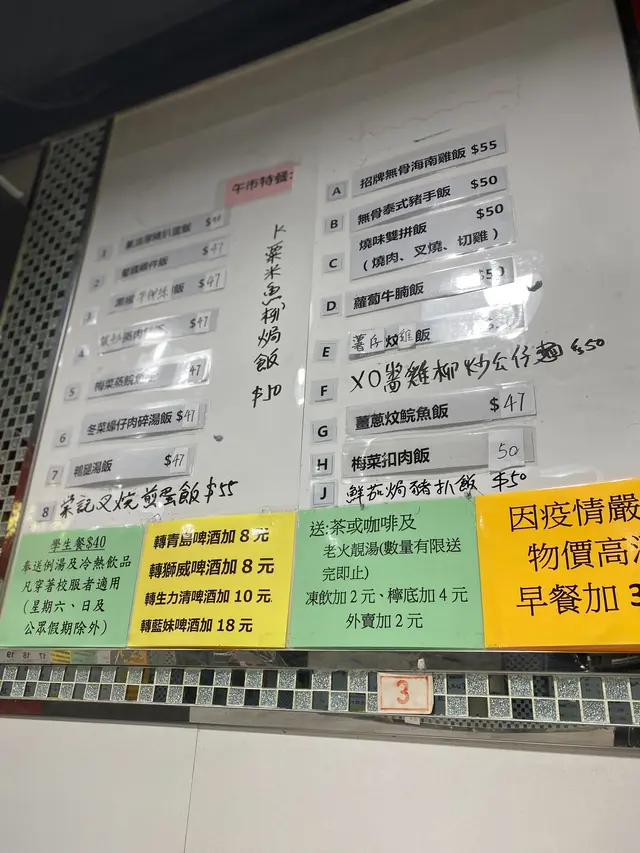 午市特餐:
1
$
2
飯 $47
3
飯 $47
4
$47
5
梅菜蒸 47
6
冬菜蠔仔肉碎湯飯 $47
7
鴨腿湯飯 $47
8 榮記叉燒煎蛋飯 $55
K 粟米魚柳焗飯 $50
A 招牌無骨海南雞飯 $55
B 無骨泰式豬手飯 $50
C 燒味雙拼飯 $50
(燒肉、叉燒、切雞)
D 蘿蔔牛腩飯 $50
E 薯仔炆雞飯
F XO醬雞柳炒公仔麵 $50
G 薑蔥炆鯇魚飯 $47
H 梅菜扣肉飯 50
J 鮮茄焗豬扒飯 $50
學生餐$40
奉送例湯及冷熱飲品
凡穿著校服者適用
(星期六、日及
公眾假期除外)
轉青島啤酒加 8 元
轉獅威啤酒加 8 元
轉生力清啤酒加 10 元
轉藍妹啤酒加 18 元
送:茶或咖啡及
老火靚湯(數量有限送
完即止)
凍飲加 2 元、檸底加 4 元
外賣加 2 元
因疫情嚴
物價高
早餐加 3
3